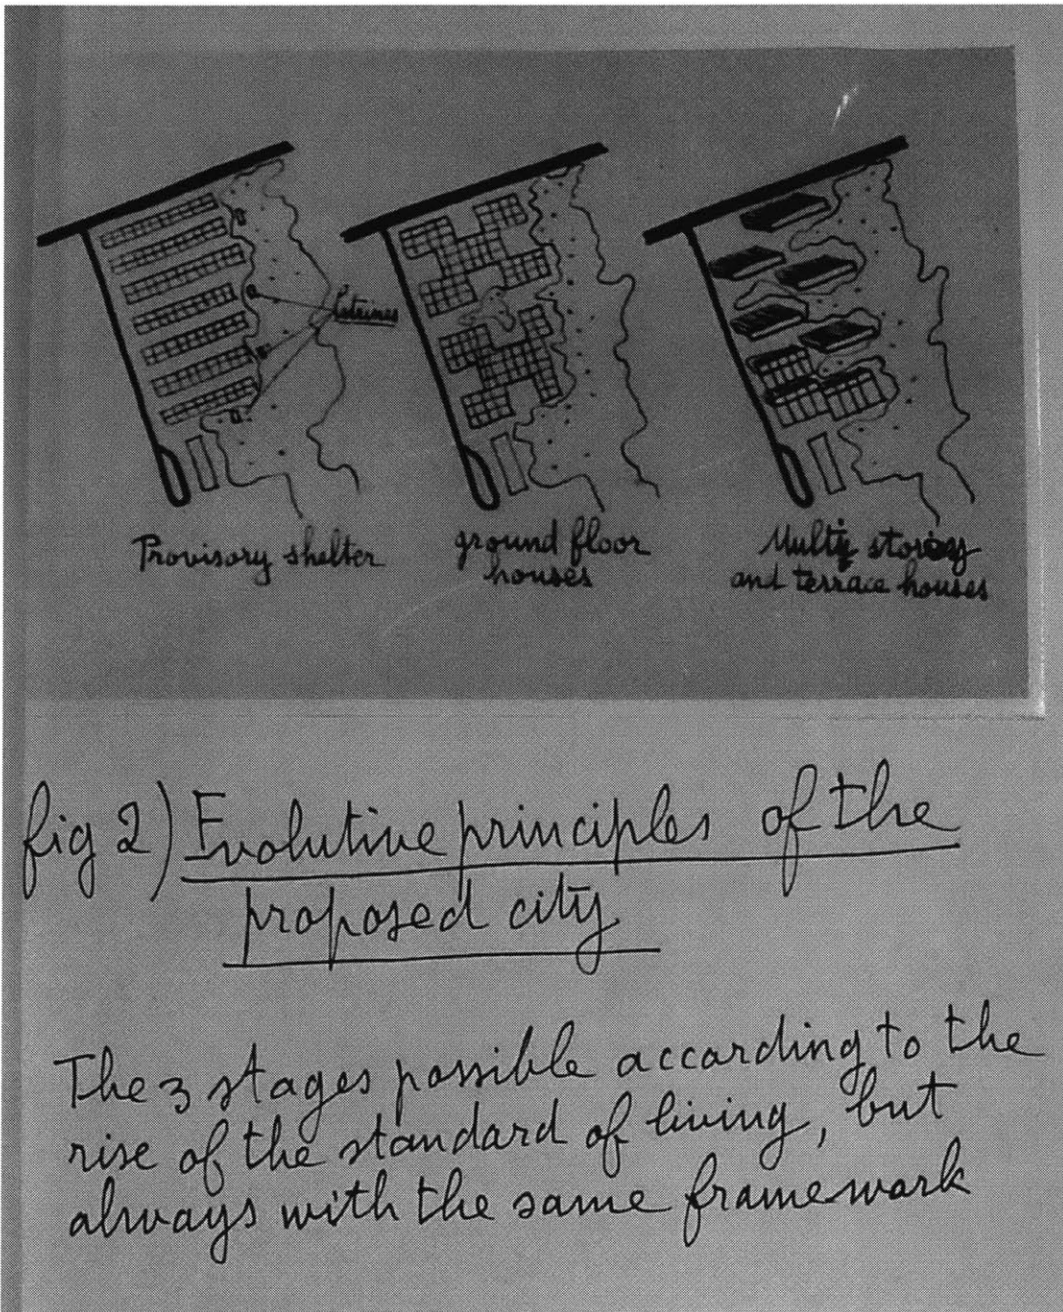 Provisory shelter
ground floor
houses
Multi
and terrace houses
fig 2) Evolutive principles of the
proposed city
The 3 stages possible according to the
rise of the standard of living, but
always with the same framework